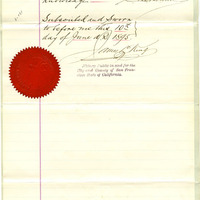 Subscribed and Sworn
to before me this 10th
day of June A.D. 1895
Notary Public in and for the
City and County of San Fran-
cisco, State of California.